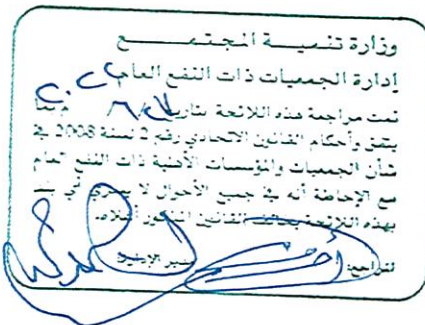 وزارة تنميـــة المجتمـــــــع
إدارة الجمعيات ذات النفع العام
تمت مراجعة هذه اللائحة بتاريخ بما
يتفق وأحكام القانون الاتحادي رقم 2 لسنة 2008 في
شأن الجمعيات والمؤسسات الأهلية ذات النفع العام
مع الإحاطة أنه في جميع الأحوال لا يسري أي بند
بهذه اللائحة يخالف القانون المذكور أعلاه
المراجع: مدير الإدارة